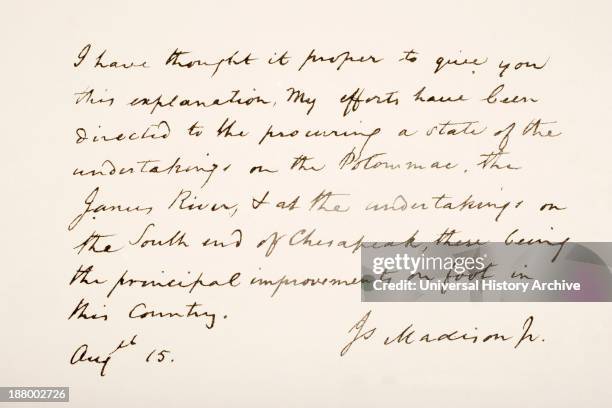 I have thought it proper to give you
this explanation, My efforts have been
directed to the procuring a state of the
undertakings on the Potowmac, the
James River, & at the undertakings on
the South end of Chesapeak, these being
the principal improvement on foot in
this Country.
Augst 15.
Js Madison Jr.
gettyimages
Credit: Universal History Archive
188002726